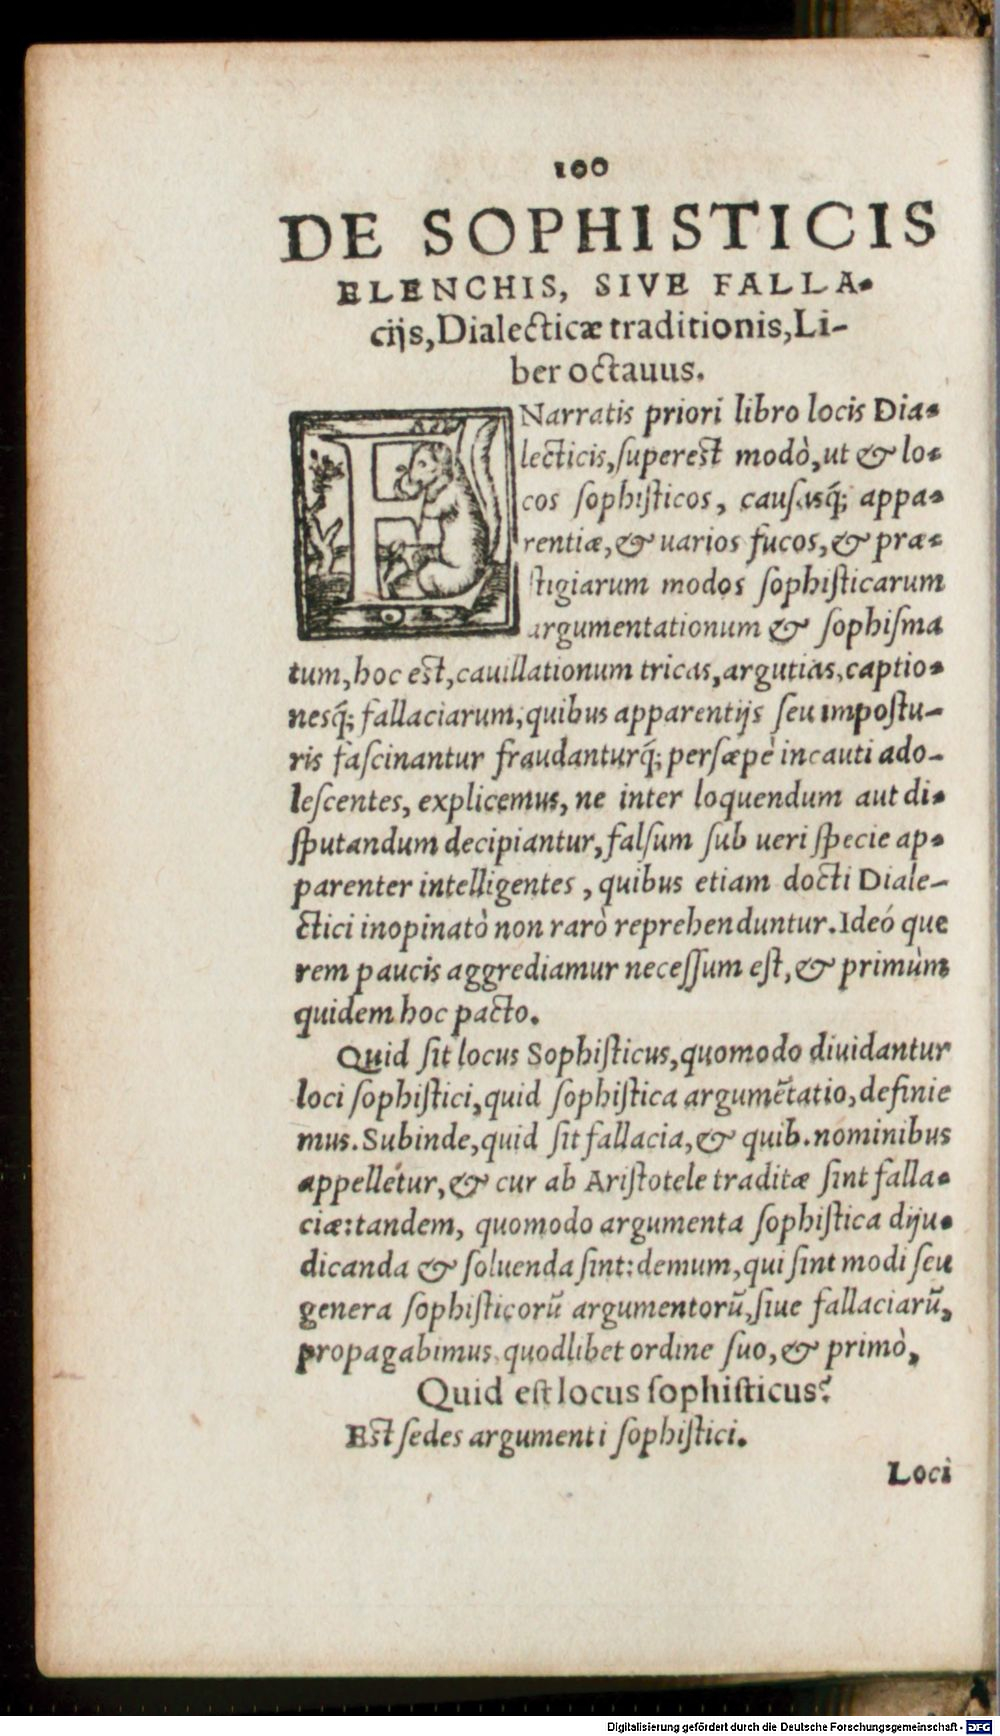 100
DE SOPHISTICIS
ELENCHIS, SIVE FALLA-
cijs, Dialecticæ traditionis, Li-
ber octauus.
ENarratis priori libro locis Dia-
lecticis, ſupereſt modò, ut & lo-
cos ſophiſticos, cauſasq́; appa-
rentiæ, & uarios fucos, & præ-
ſtigiarum modos ſophiſticarum
argumentationum & ſophiſma
tum, hoc eſt, cauillationum tricas, argutias, captio-
nesq́; fallaciarum, quibus apparentijs ſeu impoſtu-
ris faſcinantur fraudanturq́; perſæpè incauti ado-
leſcentes, explicemus, ne inter loquendum aut di-
ſputandum decipiantur, falſum ſub ueri ſpecie ap-
parenter intelligentes, quibus etiam docti Diale-
ctici inopinatò non rarò reprehenduntur. Ideó que
rem paucis aggrediamur neceſſum eſt, & primùm
quidem hoc pacto.
Quid ſit locus Sophiſticus, quomodo diuidantur
loci ſophiſtici, quid ſophiſtica argumẽtatio, definie
mus. Subinde, quid ſit fallacia, & quib. nominibus
appellẽtur, & cur ab Ariſtotele traditæ ſint falla-
ciæ: tandem, quomodo argumenta ſophiſtica diju-
dicanda & ſoluenda ſint: demum, qui ſint modi ſeu
genera ſophiſticorũ argumentorũ, ſiue fallaciarũ,
propagabimus, quodlibet ordine ſuo, & primò,
Quid eſt locus ſophiſticus?
Eſt ſedes argumenti ſophiſtici.
Loci
Digitalisierung gefördert durch die Deutsche Forschungsgemeinschaft - DFG